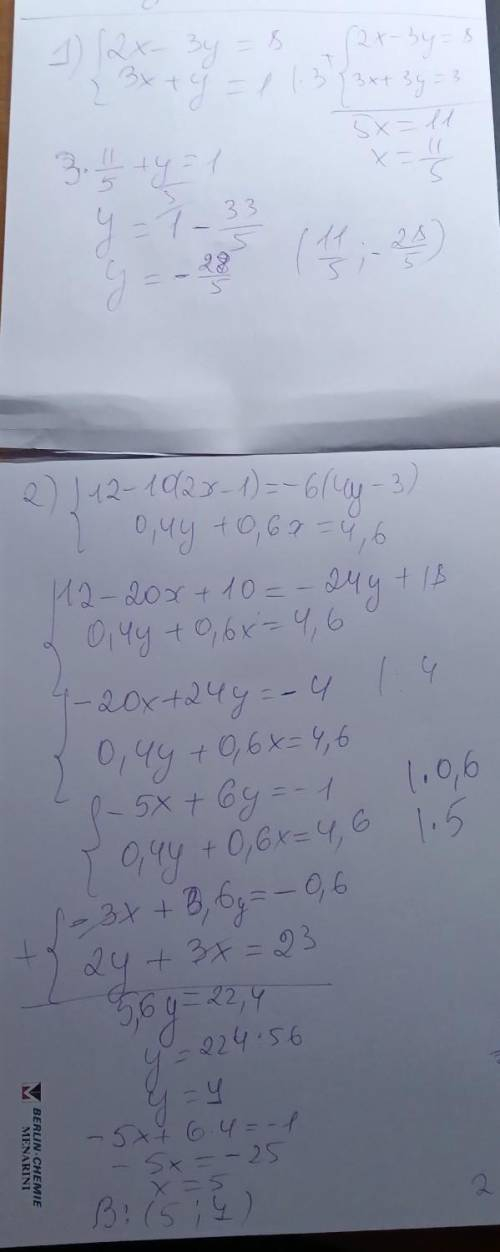 1) { 2x - 3y = 8
3x + y = 1 | · 3
+ { 2x - 3y = 8
3x + 3y = 3
5x = 11
x = 11/5
3 · 11/5 + y = 1
y = 1 - 33/5
y = - 28/5
(11/5 ; - 28/5)
2) { 12 - 10(2x - 1) = -6(4y - 3)
0,4y + 0,6x = 4,6
{ 12 - 20x + 10 = - 24y + 18
0,4y + 0,6x = 4,6
{ - 20x + 24y = - 4 | : 4
0,4y + 0,6x = 4,6
{ - 5x + 6y = - 1 | · 0,6
0,4y + 0,6x = 4,6 | · 5
+ { - 3x + 3,6y = - 0,6
2y + 3x = 23
5,6y = 22,4
y = 224 · 56
y = 4
- 5x + 6 · 4 = - 1
- 5x = - 25
x = 5
В: (5 ; 4)
2
BERLIN-CHEMIE
MENARINI